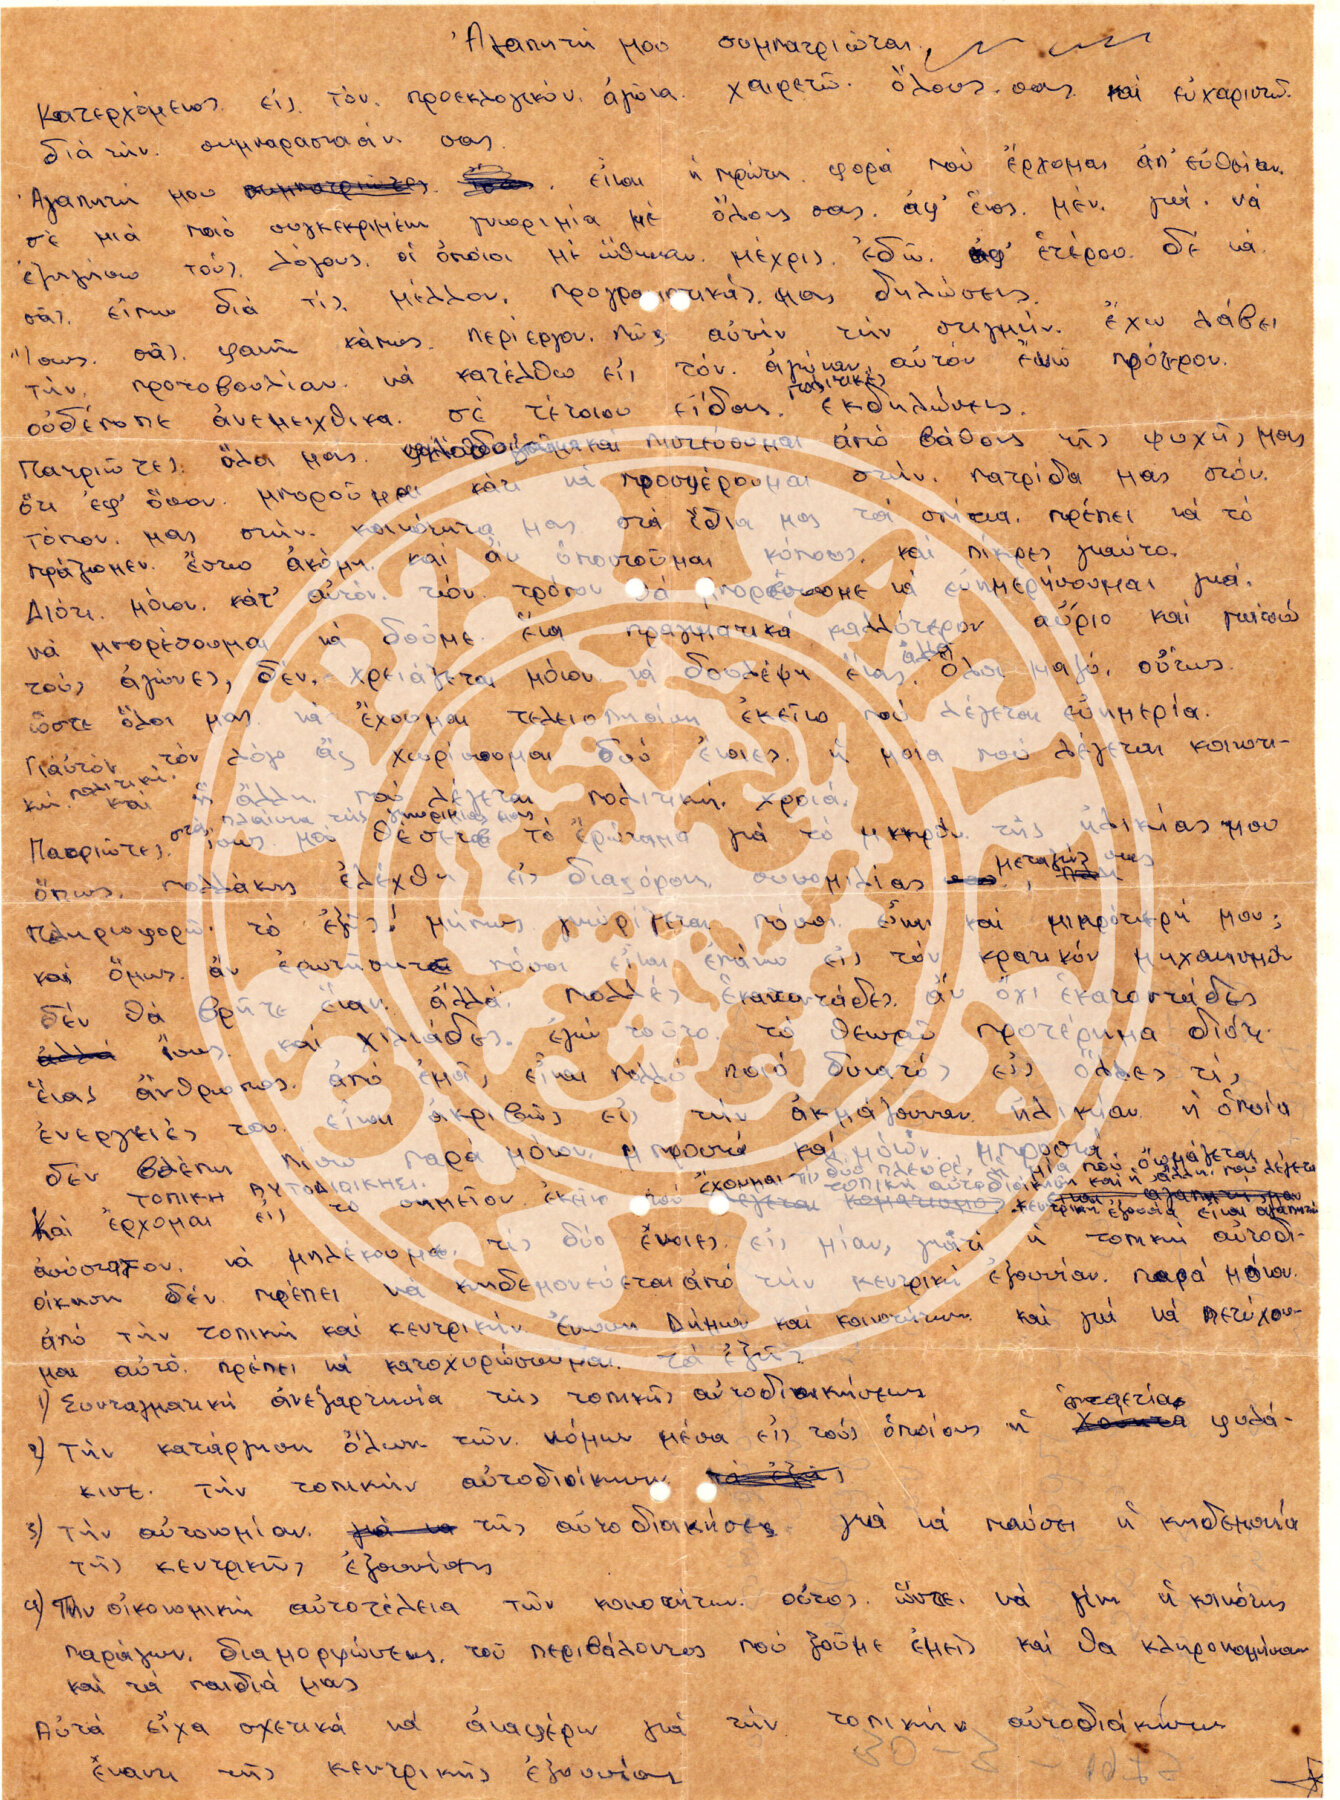 Ἀγαπητή μου συμπατριώται,
Κατερχόμενος εἰς τόν προεκλογικόν ἀγῶνα χαιρετῶ ὅλους σας καί εὐχαριστῶ
διά τήν συμπαράστασίν σας
Ἀγαπητή μου συμπατριώτες εἶναι ἡ πρώτη φορά πού ἔρχομαι ἀπ' εὐθείαν
σέ μιά ποιό συγκεκριμένη γνωριμία μέ ὅλους σας ἀφ' ἕνος μέν γιά νά
ἐξηγήσω τούς λόγους οἱ ὁποῖοι μέ ὤθησαν μέχρις ἐδῶ ἀφ' ἑτέρου δέ νά
σᾶς εἴπω διά τίς μέλλον προγραμματικάς μας δηλώσεις.
Ἴσως σᾶς φανῆ κάπως περίεργον πῶς αὐτήν τήν στιγμήν ἔχω λάβει
τήν προτοβουλίαν νά κατέλθω εἰς τόν ἀγῶναν αὐτόν ἐνῶ πρότερον
οὐδέποτε ἀνεμείχθικα σέ τέτοιου εἴδους πολιτικές ἐκδηλώσεις.
Πατριῶτες ὅλοι μας καί πιστεύουμαι ἀπό βάθους τῆς ψυχῆς μας
ὅτι ἐφ' ὅσον μποροῦμαι κάτι νά προσφέρουμαι στήν πατρίδα μας στόν
τόπον μας στήν κοινότητα μας στά ἴδια μας τά σπίτια πρέπει νά τό
πράξωμεν ἔστω ἀκόμη καί ἄν ὑποστοῦμαι κόπους καί πίκρες γιαὐτο.
Διότι μόνον κατ' αὐτόν τόν τρόπον θά μπορέσωμε νά εὐημερήσουμαι γιά
νά μπορέσουμαι νά δοῦμε ἕνα πραγματικά καλλύτερον αὔριο καί πίσω
τούς ἀγῶνες, δέν χρειάζεται μόνον νά δουλέψη ἕνας ἀλλά ὅλοι μαζύ, οὕτως
ὥστε ὅλοι μας νά ἔχουμαι τελειοποιήση ἐκεῖνο πού λέγεται εὐημερία.
Γιαὐτόν τόν λόγο ἄς χωρίσουμαι δυό ἔνοιες ἡ μοία πού λέγεται κοινοτι-
κή πολιτική καί ἡ ἄλλη πού λέγεται πολιτική χροιά.
Πατριῶτες στά πλαίσια τῆς γνωριμίας μας ἴσως μοῦ θέσετε τό ἐρώτημα γιά τό μικρόν τῆς ἡλικίας μου
ὅπως πολλάκης ἐλέχθη εἰς διαφόρους συνομιλίας μεταξύ σας
πληροφορῶ τό ἑξῆς! μήπως γνωρίζεται πόσοι εἶναι καί μικρότεροί μου;
καί ὅμως ἄν ἐρωτήσητε πόσοι εἶναι ἐπάνω εἰς τόν κρατικόν μηχανισμόν
δέν θά βρῆτε ἕναν ἀλλά πολλές ἑκατοντάδες ἄν ὄχι ἑκατοντάδες
ἀλλά ἴσως καί χιλιάδες. ἐγώ τοῦτο τό θεωρῶ προτέρημα διότι
ἕνας ἄνθρωπος ἀπό ἐμᾶς εἶναι πολύ ποιό δυνατός εἰς ὅλες τίς
ἐνεργειές του εἶναι ἀκριβῶς εἰς τήν ἀκμάζουσαν ἡλικίαν ἡ ὁποία
δέν βλέπη πίσω παρά μόνον μπροστά καί μόνον μπροστά
ΤΟΠΙΚΗ ΑΥΤΟΔΙΟΙΚΗΣΕΙ.
Καί ἔρχομαι εἰς τό σημεῖον ἐκεῖνο πού ἔχουμαι τίς δύο πλευρές ἡ μία πού ὀνομάζεται
τοπική αὐτοδιοίκηση καί ἡ ἄλλη πού λέγεται
λέγεται κοματισμός κεντρική ἐξουσία εἶναι ἀγαπητοί
ἀνύστακτον νά μπλέκουμε τίς δύο ἔνοιες εἰς μίαν, γιατί ἡ τοπική αὐτοδι-
οίκηση δέν πρέπει νά κηδεμονεύεται ἀπό τήν κεντρική ἐξουσίαν παρά μόνον
ἀπό τήν τοπική καί κεντρικήν ἕνωση Δήμων καί κοινοτήτων καί γιά νά πετύχου-
μαι αὐτό πρέπει νά κατοχυρώσουμαι τά ἑξῆς
1) Συνταγματική ἀνεξαρτησία τῆς τοπικῆς αὐτοδιοικήσεως
2) Τήν κατάργηση ὅλων τῶν νόμων μέσα εἰς τούς ὁποίους ἡ ἑπταετία χούντα φυλά-
κισε τήν τοπικήν αὐτοδιοίκησην τά ἑξῆς
3) Τήν αὐτονομίαν γιά να τῆς αὐτοδιοικήσεως γιά νά παύσει ἡ κηδεμονία
τῆς κεντρικῆς ἐξουσίας
4) Τήν οἰκονομική αὐτοτέλεια τῶν κοινοτήτων οὕτος ὥστε νά γίνη ἡ κοινότης
παράγων διαμορφώσεως τοῦ περιβάλοντος πού ζοῦμε ἐμεῖς καί θα κληρονομήσουν
καί τά παιδιά μας
Αὐτά εἶχα σχετικά νά ἀναφέρω γιά τήν τοπικήν αὐτοδιοίκησιν
ἔναντι τῆς κεντρικῆς ἐξουσίας